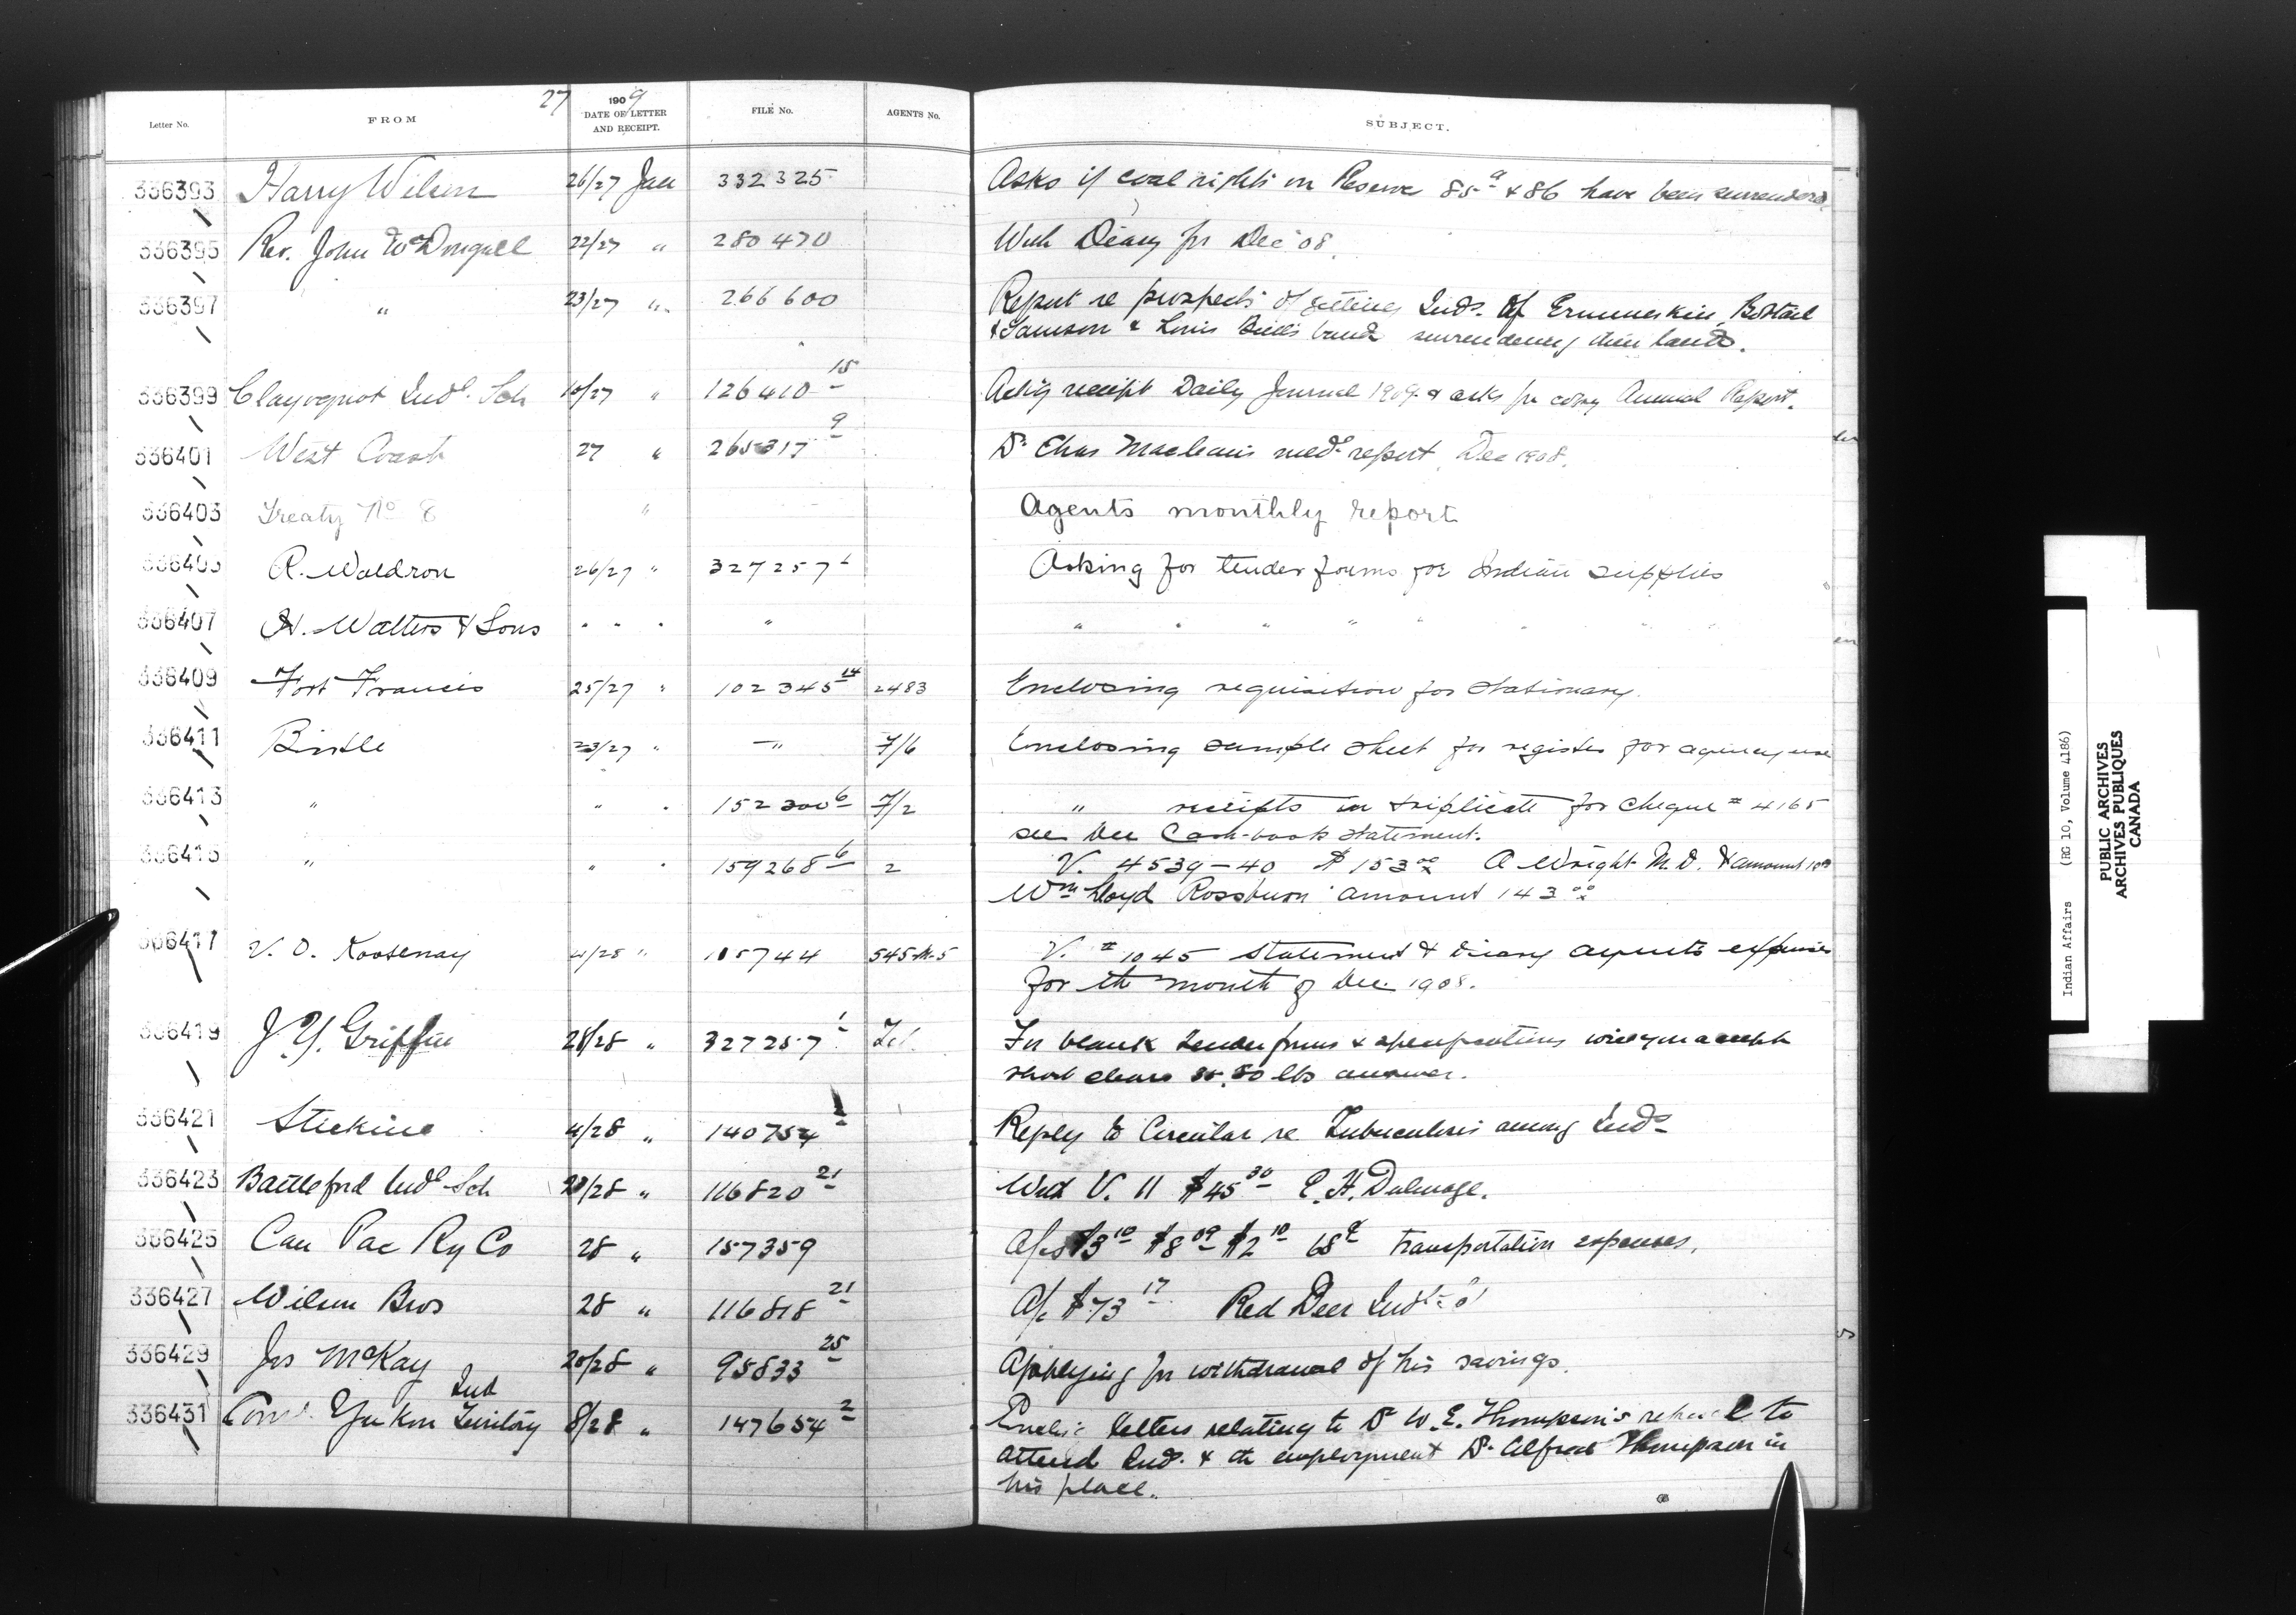 27
Letter No. FROM 1909 DATE OF LETTER AND RECEIPT. FILE No. AGENTS No. SUBJECT.
336393 Harry Wilson 26/27 Jan 332325 Asks if coal rights on Reserve 85a & 86 have been surrendered.
336395 Rev. John McDougall 22/27 " 280470 With Diary for Dec 08.
336397 " 23/27 " 266600 Report re prospects of getting Inds. of Ermineskin, Bobtail
& Samson & Louis Bull's band surrendering their lands.
336399 Clayoquot Indl. Sch 10/27 " 126410 15 Ackg receipt Daily Journal 1909 & asks for copy Annual Report.
336401 West Coast 27 " 265317 9 Dr Chas Macleans medl report, Dec 1908.
336403 Treaty No 8 " Agents monthly report
336405 R. Waldron 26/27 " 327257 1 Asking for tender forms for Indian supplies
336407 H. Walters & Sons " " " " " " " " " "
336409 Fort Francis 25/27 " 102345 14 2483 Enclosing requisition for stationary.
336411 Birtle 23/27 " — " 7/6 Enclosing sample sheet for register for agency use
336413 " " " 152300 6 7/2 " receipts in triplicate for cheque # 4165
see Dec Cash-book statement.
336415 " " " 159268 6 2 V. 4539-40 $153 00 A Wright M.D. & amount 10 00
Wm Lloyd Rossburn amount 143 00
336417 V. O. Kootenay 21/28 " 105744 545-M-5 V. # 1045 Statement & diary agents expenses
for the month of Dec. 1908.
336419 J. Y. Griffin 28/28 " 327257 1 Tel. For blank tender forms & specifications will you accept
short clears 80 lbs answer.
336421 Stickine 4/28 " 140754 1 Reply to Circular re Tuberculosis among Inds
336423 Battleford Indl Sch 20/28 " 116820 21 With V. 11 $45 30 E. H. Dulmage.
336425 Can Pac Ry Co 28 " 157359 A/cs $3 10 $8 09 $2 10 68¢ transportation expenses.
336427 Wilson Bros 28 " 116818 21 A/c $73 17 Red Deer Indl
336429 Jas McKay 20/28 " 95833 25 Applying for withdrawal of his savings.
Ind
336431 Comr. Yukon Territory 8/28 " 147654 2 Enclg letters relating to Dr W. E. Thompson's refusal to
attend Inds. & the employment Dr. Alfred Thompson in
his place.
Indian Affairs (RG 10, Volume 4186)
PUBLIC ARCHIVES
ARCHIVES PUBLIQUES
CANADA